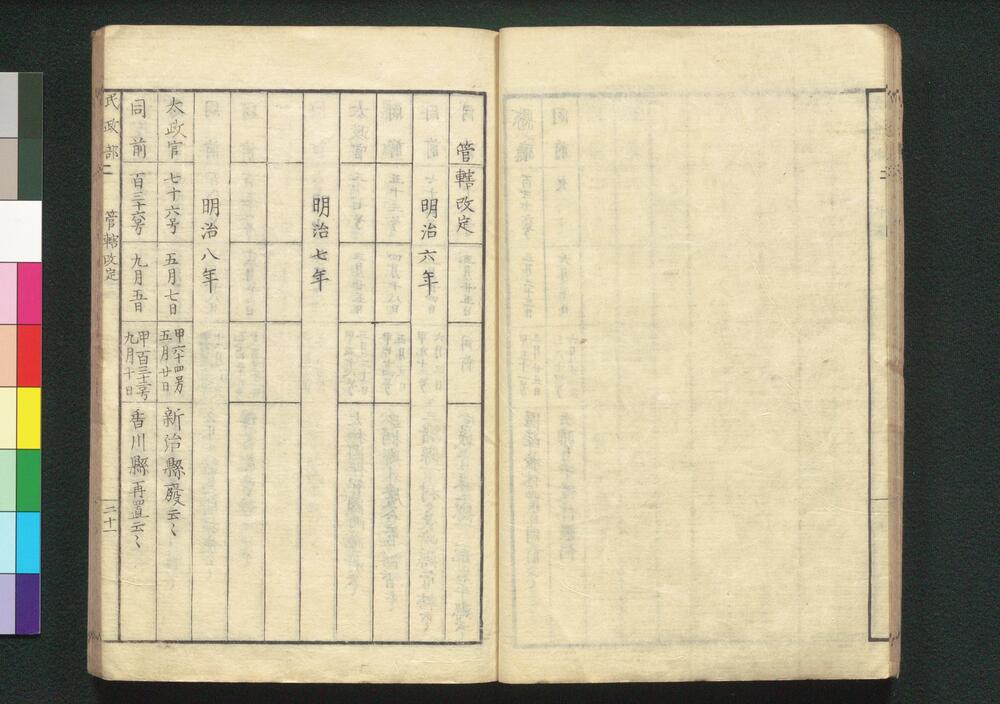 管轄改定
明治六年
明治七年
明治八年
太政官 七十六号 五月七日 甲六十四号 五月廿日 新治縣廢云〻
同前 百三十六号 九月五日 甲百三十三号 九月十日 香川縣再置云〻
民政部二 管轄改定 二十一